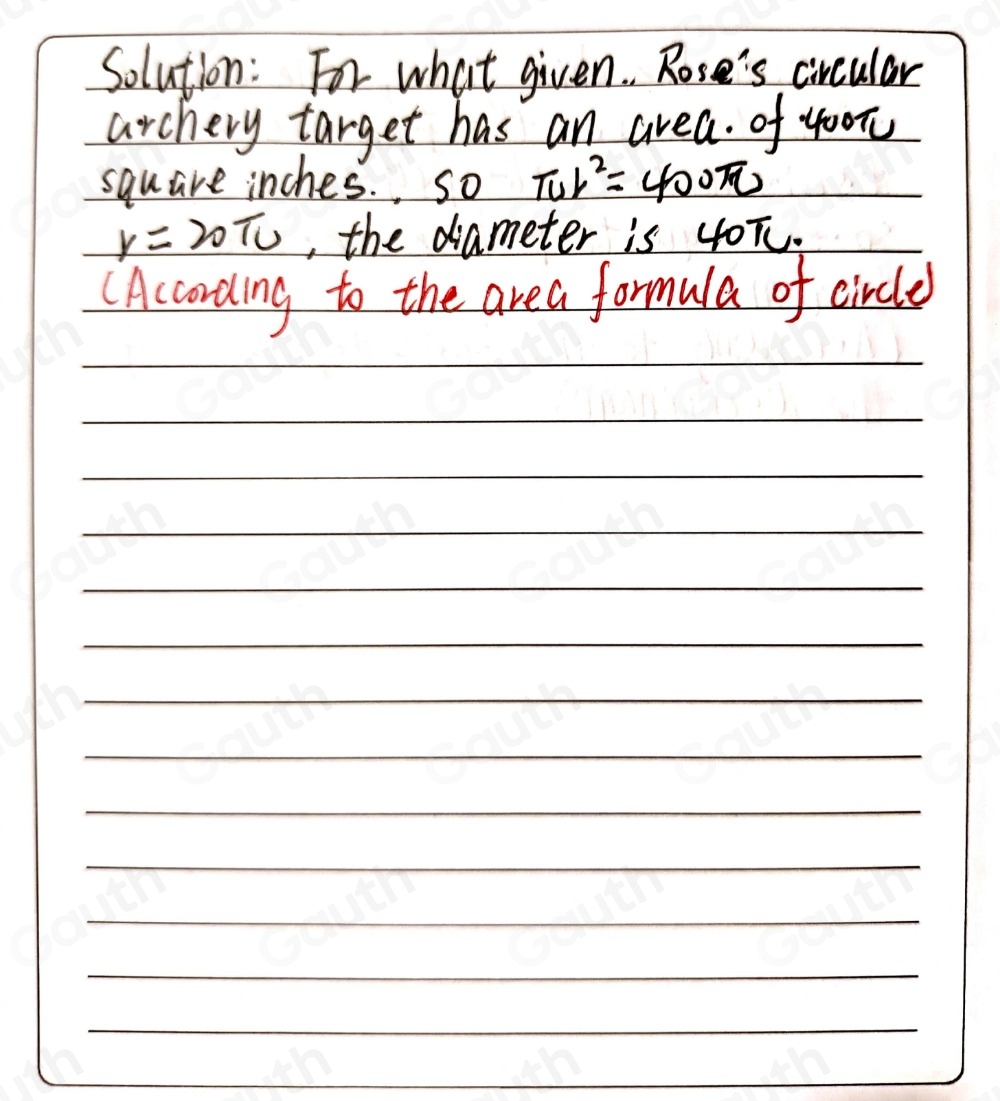 Solution: For what given.. Rose's circular
archery target has an area. of 400π
square inches.. so πr²=400π
r=20π, the diameter is 40π.
(According to the area formula of circle)